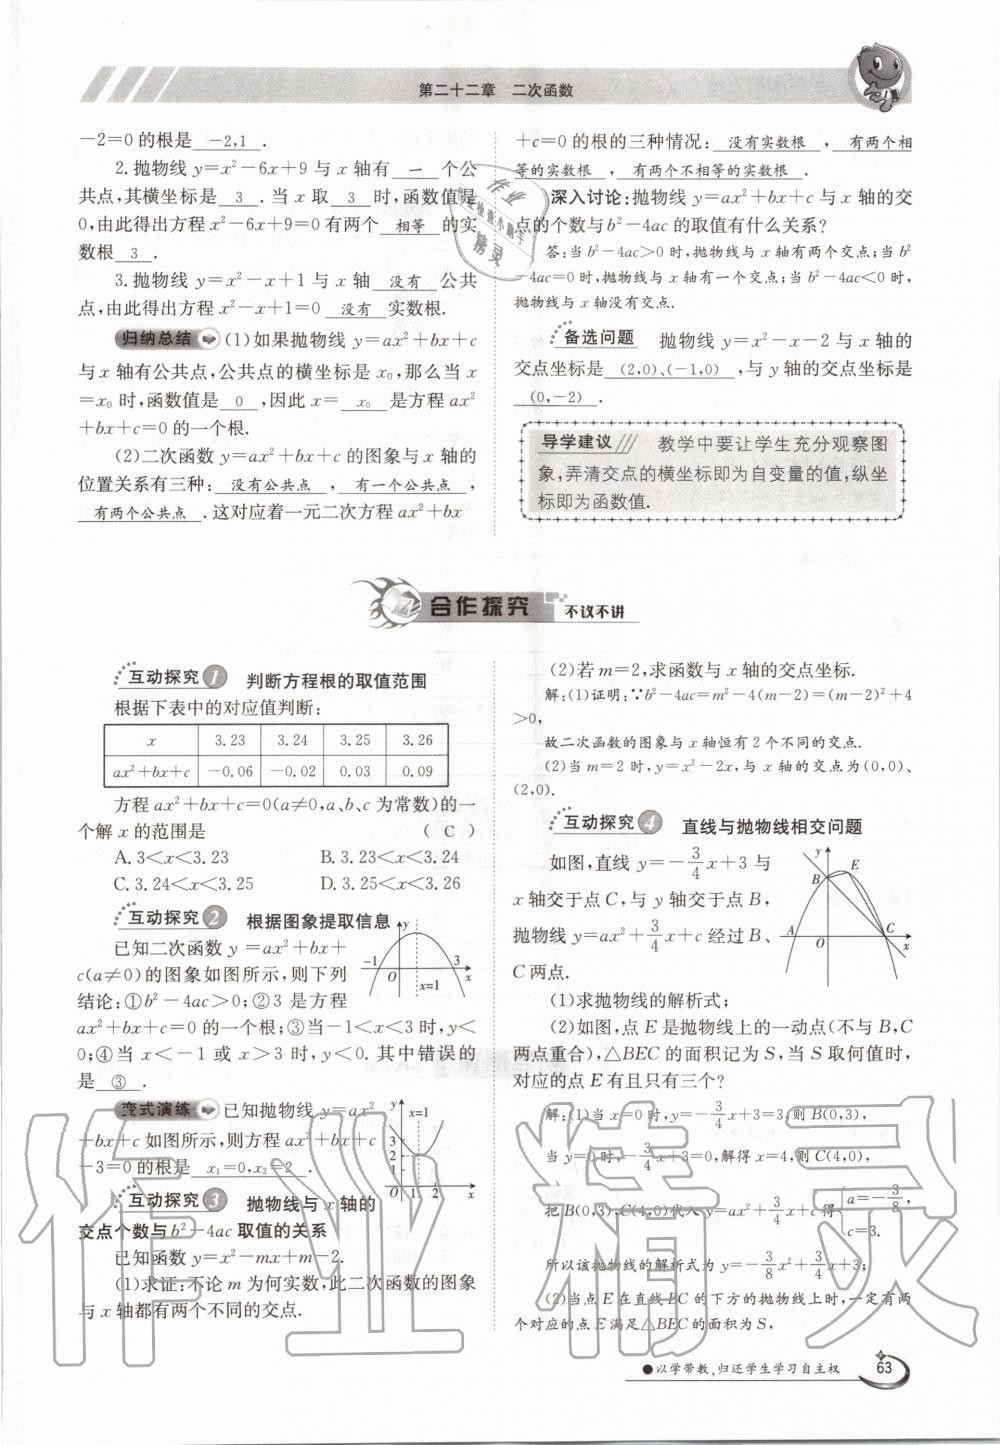 第二十二章 二次函数
-2=0的根是 -2,1 .
2.抛物线y=x²-6x+9与x轴有 一 个公
共点,其横坐标是 3 .当x取 3 时,函数值是
0,由此得出方程x²-6x+9=0有两个 相等 的实
数根 3 .
3.抛物线y=x²-x+1与x轴 没有 公共
点,由此得出方程x²-x+1=0 没有 实数根.
归纳总结 (1)如果抛物线y=ax²+bx+c
与x轴有公共点,公共点的横坐标是x₀,那么当x
=x₀时,函数值是 0 ,因此x= x₀ 是方程ax²
+bx+c=0的一个根.
(2)二次函数y=ax²+bx+c的图象与x轴的
位置关系有三种: 没有公共点 , 有一个公共点 ,
有两个公共点 .这对应着一元二次方程ax²+bx
+c=0的根的三种情况: 没有实数根 , 有两个相
等的实数根 , 有两个不相等的实数根 .
深入讨论:抛物线y=ax²+bx+c与x轴的交
点的个数与b²-4ac的取值有什么关系?
答:当b²-4ac>0时,抛物线与x轴有两个交点;当b²
-4ac=0时,抛物线与x轴有一个交点;当b²-4ac<0时,
抛物线与x轴没有交点.
备选问题 抛物线y=x²-x-2与x轴的
交点坐标是 (2,0)、(-1,0) ,与y轴的交点坐标是
(0,-2) .
导学建议 教学中要让学生充分观察图
象,弄清交点的横坐标即为自变量的值,纵坐
标即为函数值.
合作探究 不议不讲
互动探究1 判断方程根的取值范围
根据下表中的对应值判断:
x 3.23 3.24 3.25 3.26
ax²+bx+c -0.06 -0.02 0.03 0.09
方程ax²+bx+c=0(a≠0,a、b、c为常数)的一
个解x的范围是 ( C )
A.3<x<3.23 B.3.23<x<3.24
C.3.24<x<3.25 D.3.25<x<3.26
互动探究2 根据图象提取信息
已知二次函数y=ax²+bx+
c(a≠0)的图象如图所示,则下列
结论:①b²-4ac>0;②3是方程
ax²+bx+c=0的一个根;③当-1<x<3时,y<
0;④当x<-1或x>3时,y<0.其中错误的
是 ③ .
y
-1 O 3 x
x=1
变式演练 已知抛物线y=ax²
+bx+c如图所示,则方程ax²+bx+c
-3=0的根是 x₁=0,x₂=2 .
y x=1
3
2
1
O 1 2 x
互动探究3 抛物线与x轴的
交点个数与b²-4ac取值的关系
已知函数y=x²-mx+m-2.
(1)求证:不论m为何实数,此二次函数的图象
与x轴都有两个不同的交点.
(2)若m=2,求函数与x轴的交点坐标.
解:(1)证明:∵b²-4ac=m²-4(m-2)=(m-2)²+4
>0,
故二次函数的图象与x轴恒有2个不同的交点.
(2)当m=2时,y=x²-2x,与x轴的交点为(0,0)、
(2,0).
互动探究4 直线与抛物线相交问题
如图,直线y=-3/4x+3与
x轴交于点C,与y轴交于点B,
抛物线y=ax²+3/4x+c经过B、
C两点.
y
B E
A O C x
(1)求抛物线的解析式;
(2)如图,点E是抛物线上的一动点(不与B,C
两点重合),△BEC的面积记为S,当S取何值时,
对应的点E有且只有三个?
解:(1)当x=0时,y=-3/4x+3=3,则B(0,3),
当y=0时,-3/4x+3=0,解得x=4,则C(4,0),
把B(0,3),C(4,0)代入y=ax²+3/4x+c得{a=-3/8,
c=3.
所以该抛物线的解析式为y=-3/8x²+3/4x+3;
(2)当点E在直线BC的下方的抛物线上时,一定有两
个对应的点E满足△BEC的面积为S,
●以学带教,归还学生学习自主权 63
作业精灵